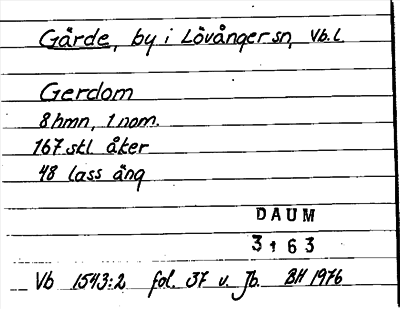 Gärde, by i Lövånger sn, Vb. l.
Gerdom
8 hmn, 1 nom.
167 stl åker
48 lass äng
DAUM
3163
Vb 1543:2 fol. 37 u. Jb. BH 1976